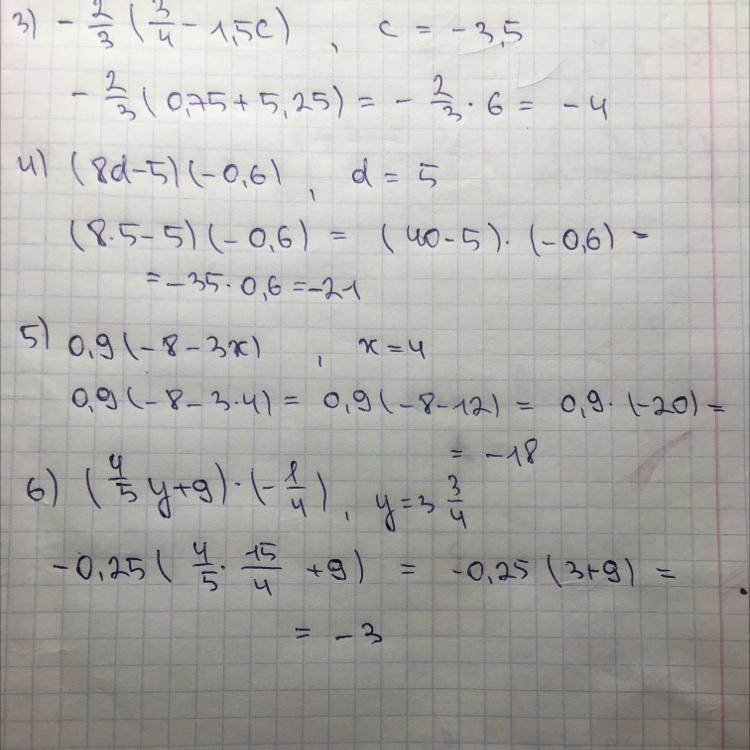 3) - 2/3 ( 3/4 - 1,5c) , c = -3,5
- 2/3 (0,75 + 5,25) = - 2/3 · 6 = -4
4) (8d-5)(-0,6) , d = 5
(8·5-5)(-0,6) = (40-5)·(-0,6) =
= -35·0,6 = -21
5) 0,9(-8-3x) , x=4
0,9(-8-3·4) = 0,9(-8-12) = 0,9·(-20) =
= -18
6) ( 4/5 y+9)·(- 1/4 ) , y=3 3/4
-0,25( 4/5 · 15/4 +9) = -0,25(3+9) =
= -3